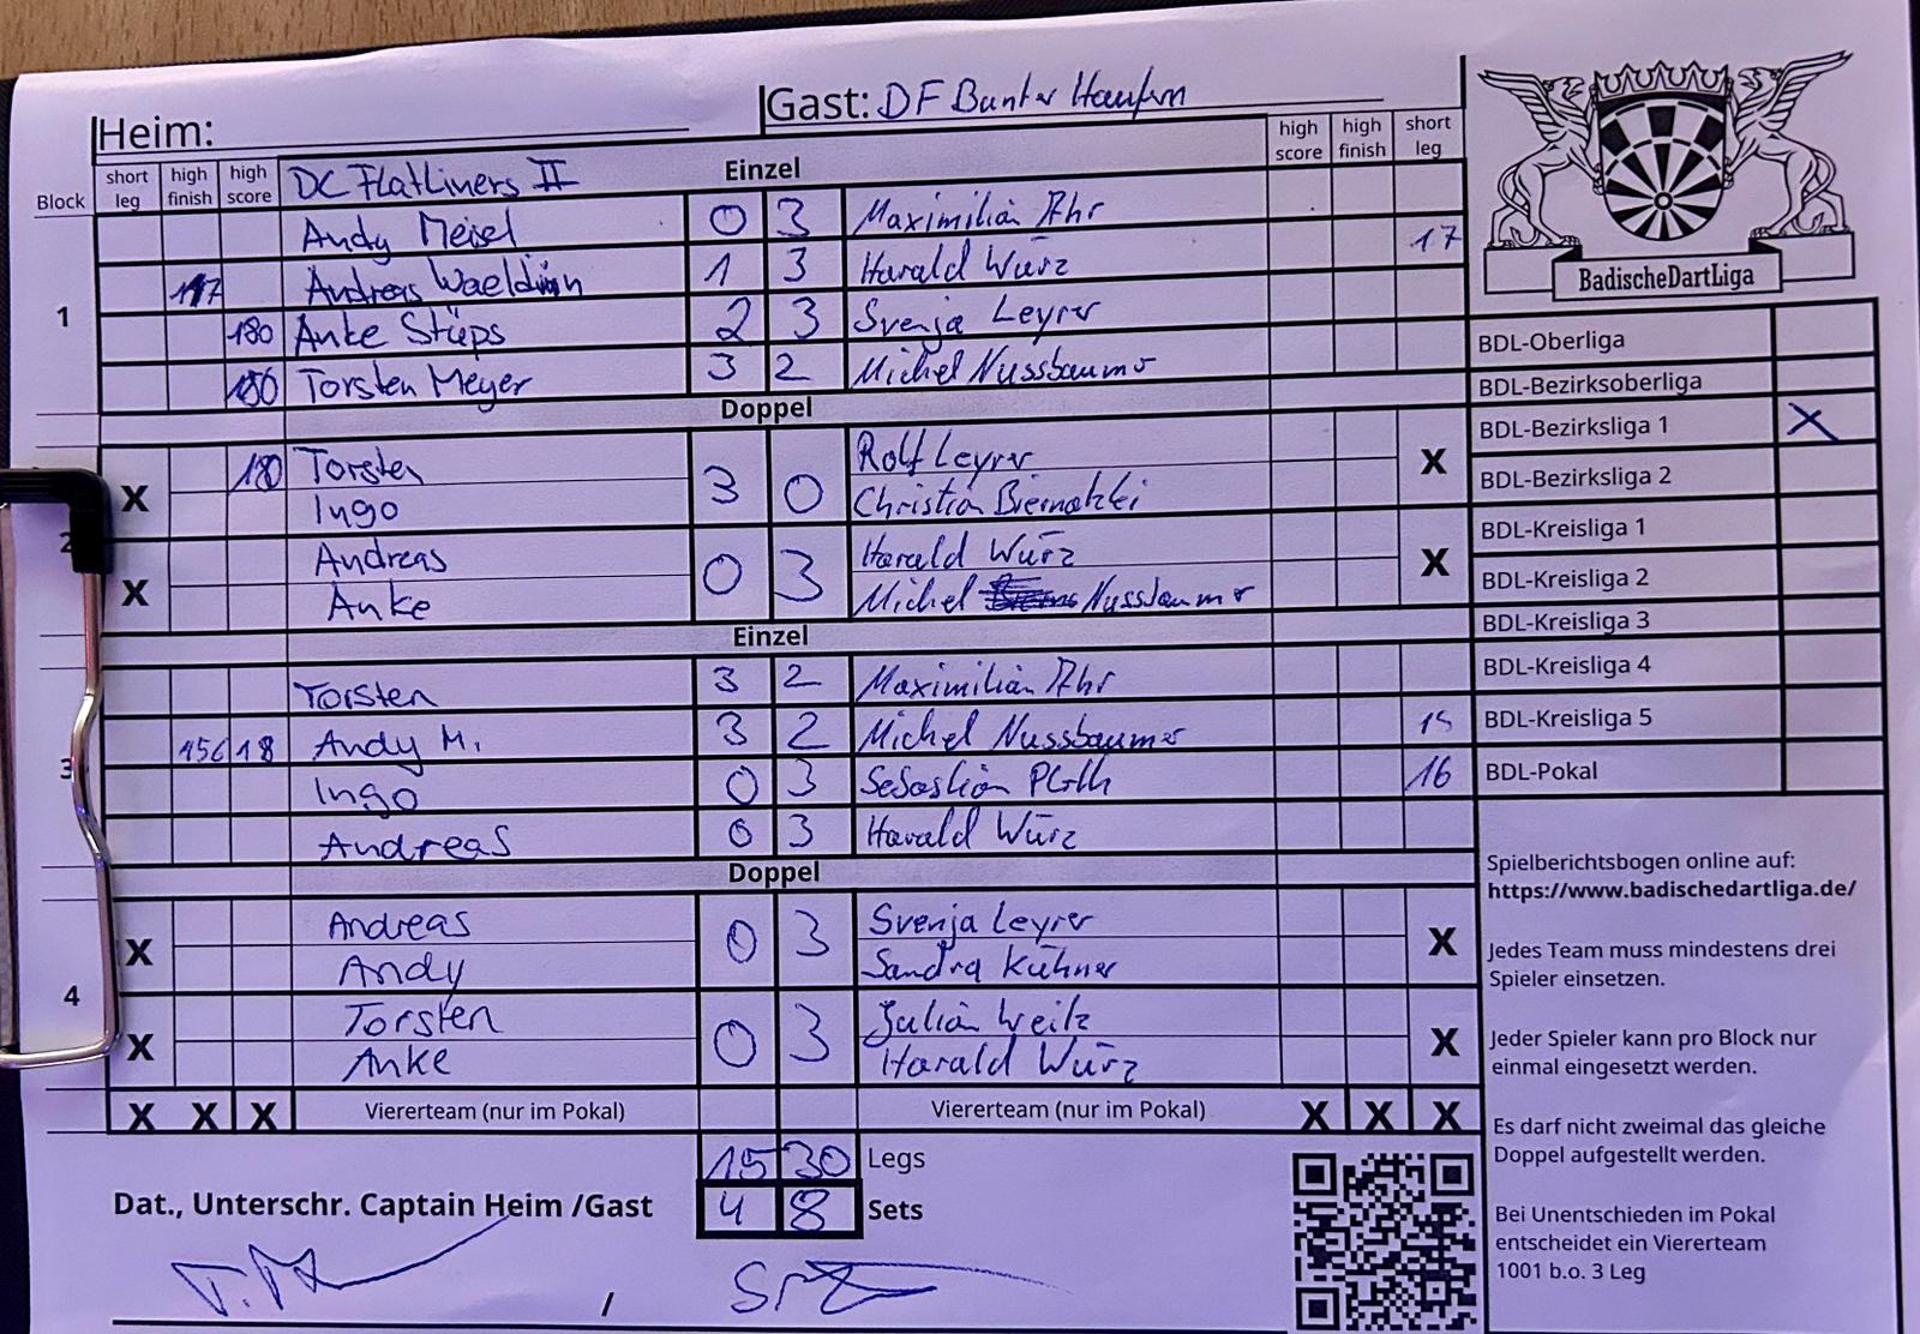 Heim: Gast: DF Bunter Haufen
Block short leg high finish high score DC Flatliners II Einzel high score high finish short leg
Andy Meisel 0 3 Maximilian
117 Andreas 1 3 Harald Würz 17
1
180 Anke Stüps 2 3 Svenja Leyrer
180 Torsten Meyer 3 2 Michel Nussbaumer
Doppel
180 Torsten 3 0 Rolf Leyrer
X Ingo Christian Biernatzki X
2
Andreas 0 3 Harald Würz
X Anke Michel Nussbaumer X
Einzel
Torsten 3 2 Maximilian
156 18 Andy M. 3 2 Michel Nussbaumer 15
3
Ingo 0 3 Sebastian 16
Andreas 0 3 Harald Würz
Doppel
Andreas 0 3 Svenja Leyrer
X Andy Sandra Kühner X
4
Torsten 0 3 Julian
X Anke Harald Würz X
X X X Viererteam (nur im Pokal) Viererteam (nur im Pokal) X X X
15 30 Legs
Dat., Unterschr. Captain Heim /Gast 4 8 Sets
/
BadischeDartLiga
BDL-Oberliga
BDL-Bezirksoberliga
BDL-Bezirksliga 1 X
BDL-Bezirksliga 2
BDL-Kreisliga 1
BDL-Kreisliga 2
BDL-Kreisliga 3
BDL-Kreisliga 4
BDL-Kreisliga 5
BDL-Pokal
Spielberichtsbogen online auf:
https://www.badischedartliga.de/
Jedes Team muss mindestens drei
Spieler einsetzen.
Jeder Spieler kann pro Block nur
einmal eingesetzt werden.
Es darf nicht zweimal das gleiche
Doppel aufgestellt werden.
Bei Unentschieden im Pokal
entscheidet ein Viererteam
1001 b.o. 3 Leg